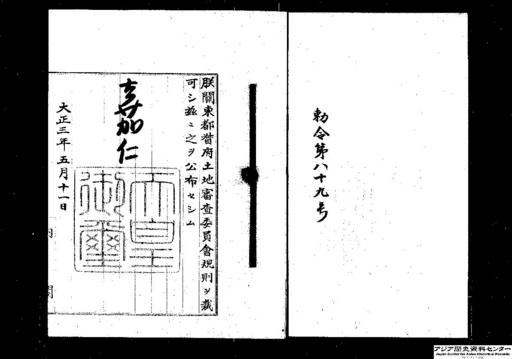 勅令第八十九号
朕關東都督府土地審査委員會規則ヲ裁
可シ茲ニ之ヲ公布セシム
嘉仁
天皇御璽
大正三年五月十一日
内閣
アジア歴史資料センター
Japan Center for Asian Historical Records